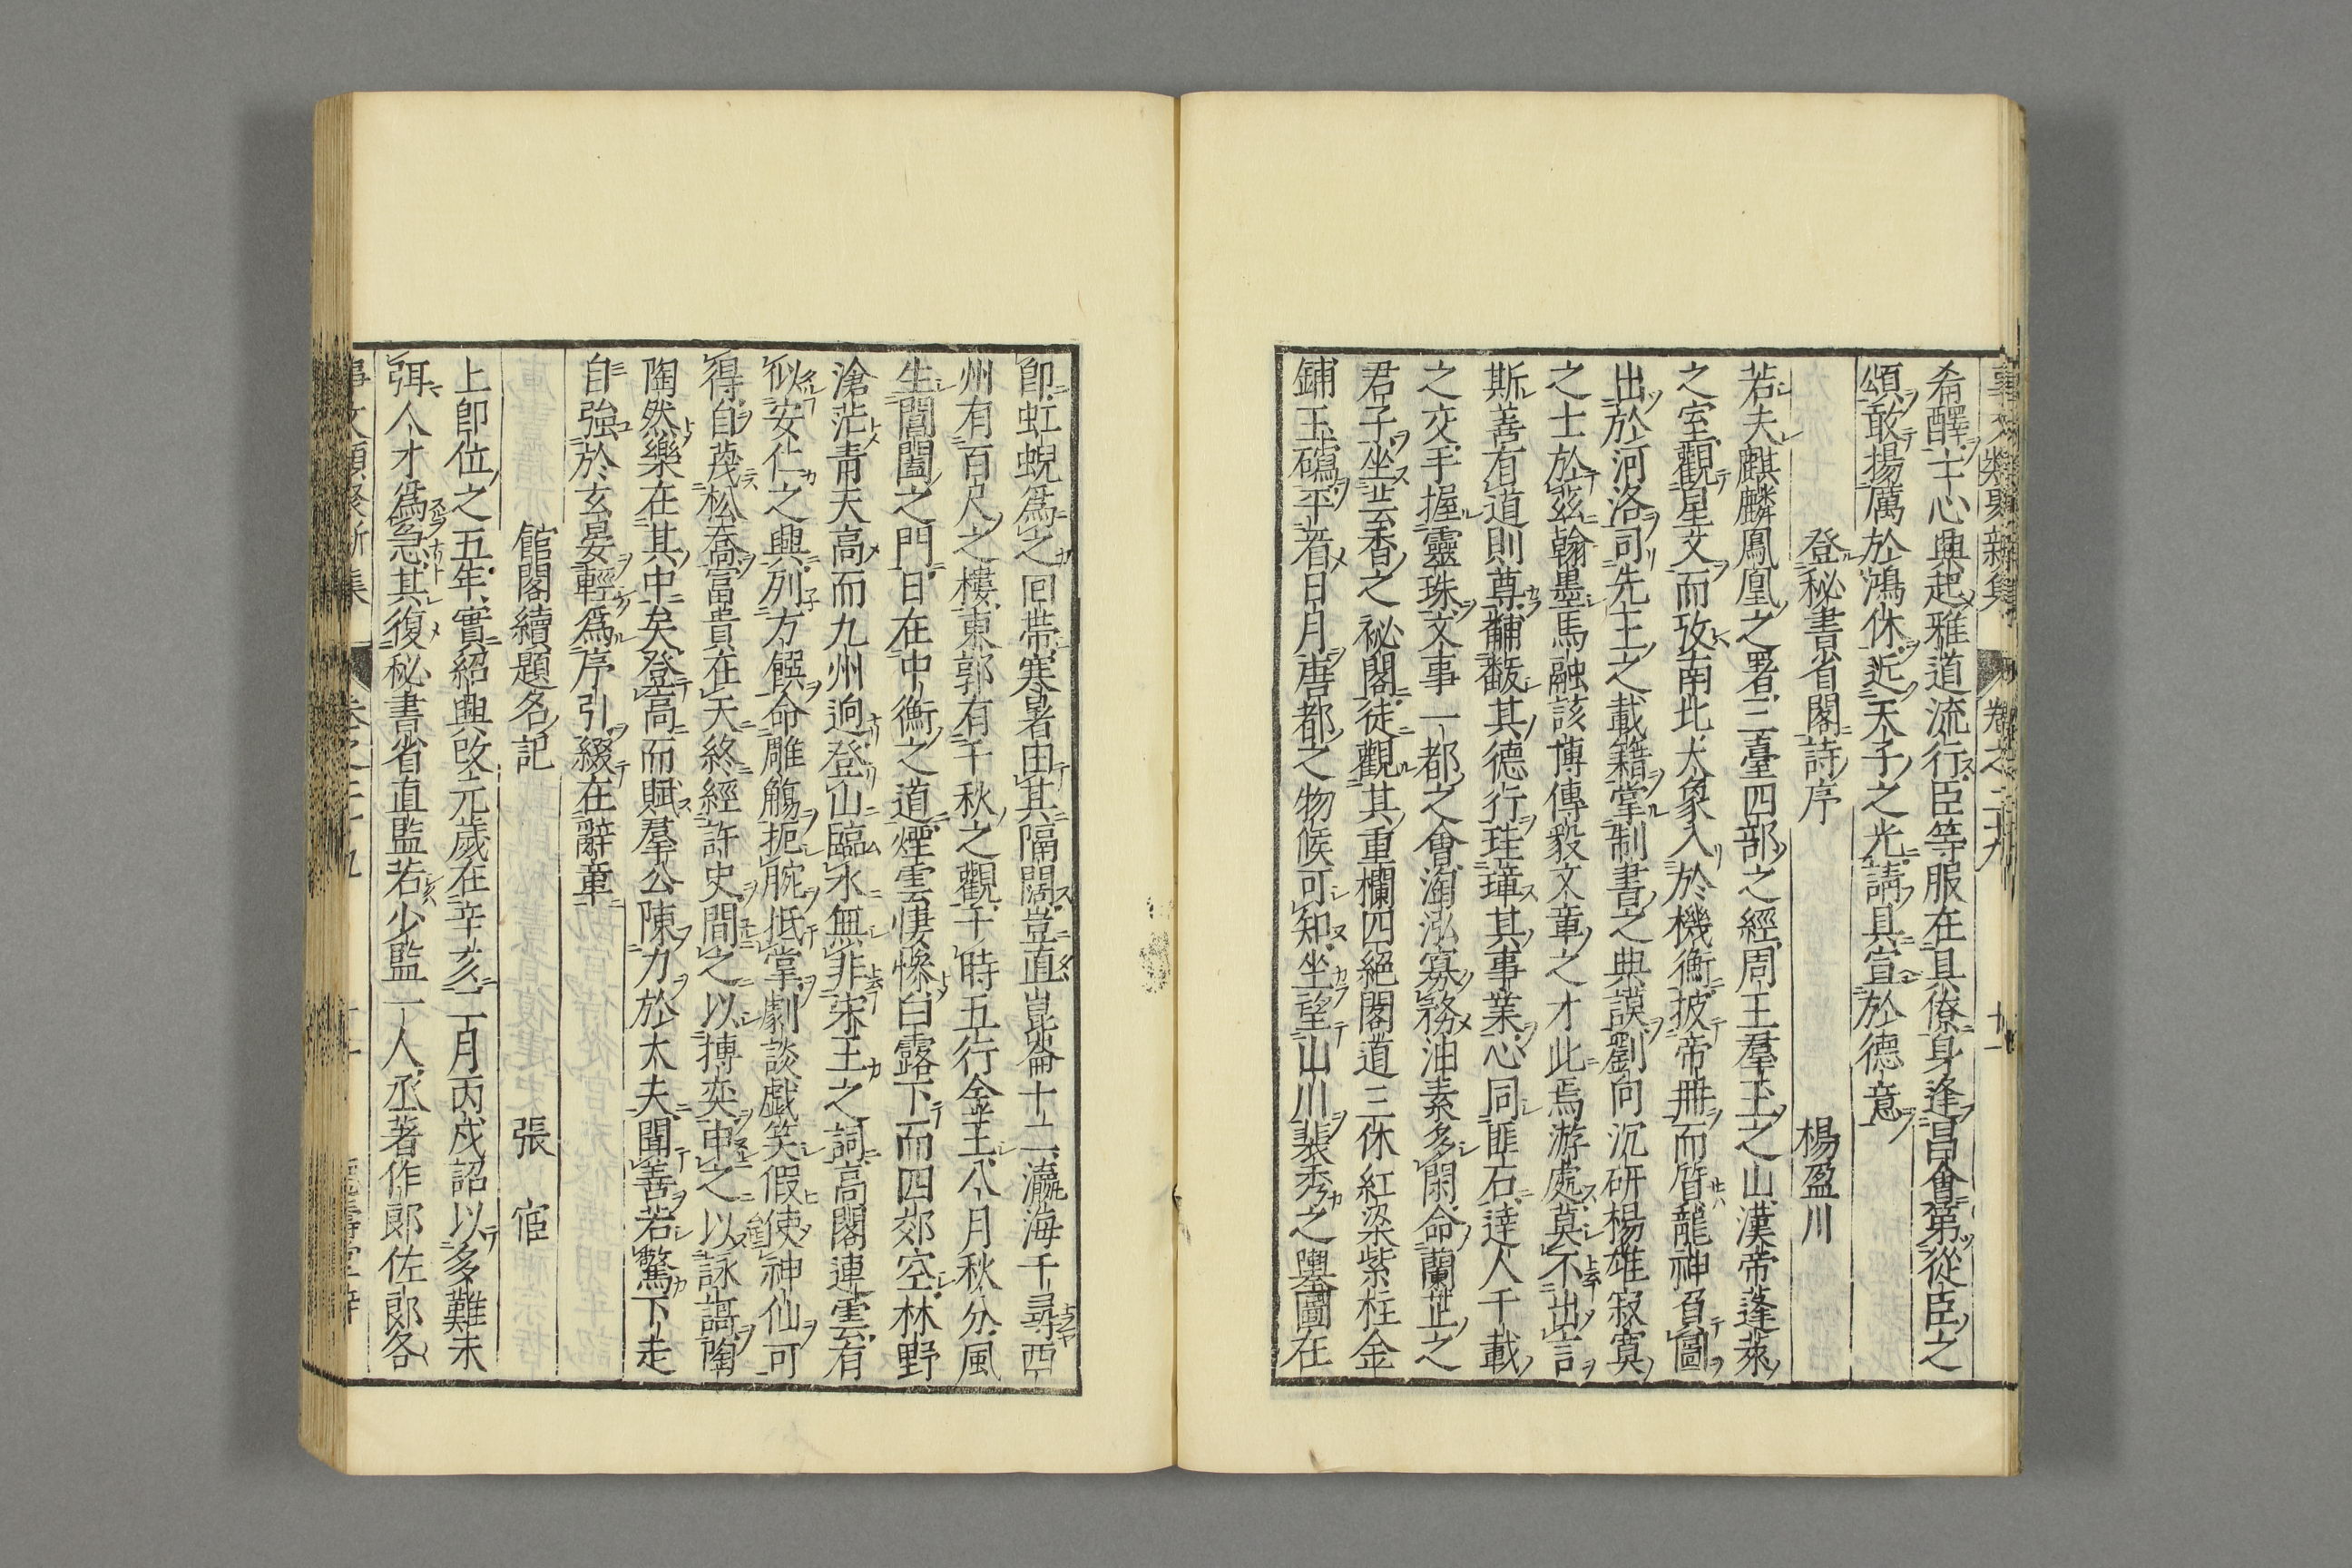 事文類聚新集 卷之三十九 廿一
肴醳主心興起雅道流行臣等服在具僚身逢昌會第從臣之
頌敢揚厲於鴻休近天子之光請具宣於德意
登秘書省閣詩序 楊盈川
若夫麒麟鳳凰之署三臺四部之經周王羣玉之山漢帝蓬萊
之室觀星文而攷南北大象入於機衡披帝冊而質龍神負圖
出於河洛司先王之載籍掌制書之典謨劉向沉研楊雄寂寞
之士於茲翰墨馬融該博傅毅文章之才此焉游處莫不出言
斯善有道則尊黼黻其德行珪璋其事業心同匪石達人千載
之交手握靈珠文事一都之會淘泓寡務油素多閑命蘭芷之
君子坐芸香之祕閣徒觀其重欄四絕閣道三休紅梁紫柱金
鋪玉磶平看日月唐都之物候可知坐望山川裴秀之輿圖在
卽虹蜺爲之回帶寒暑由其隔闊豈直崑崙十二瀛海千尋西
州有百尺之樓東郭有千秋之觀于時五行金王八月秋分風
生閶闔之門日在中衡之道煙雲悽慘白露下而四郊空林野
滄茫青天高而九州逈登山臨水無非宋王之詞高閣連雲有
似安仁之興列方饌命雕觴扼腕抵掌劇談戲笑假使神仙可
得自茂松喬富貴在天終經許史間之以摶奕申之以詠謌陶
陶然樂在其中矣登高而賦羣公陳力於大夫聞善若驚下走
自強於玄晏輕爲序引綴在辭章
館閣續題名記 張 宦
上卽位之五年實紹興改元歲在辛亥二月丙戍詔以多難未
弭人才爲急其復秘書省直監若少監一人丞著作郎佐郎各
事文類聚新集 卷之三十九